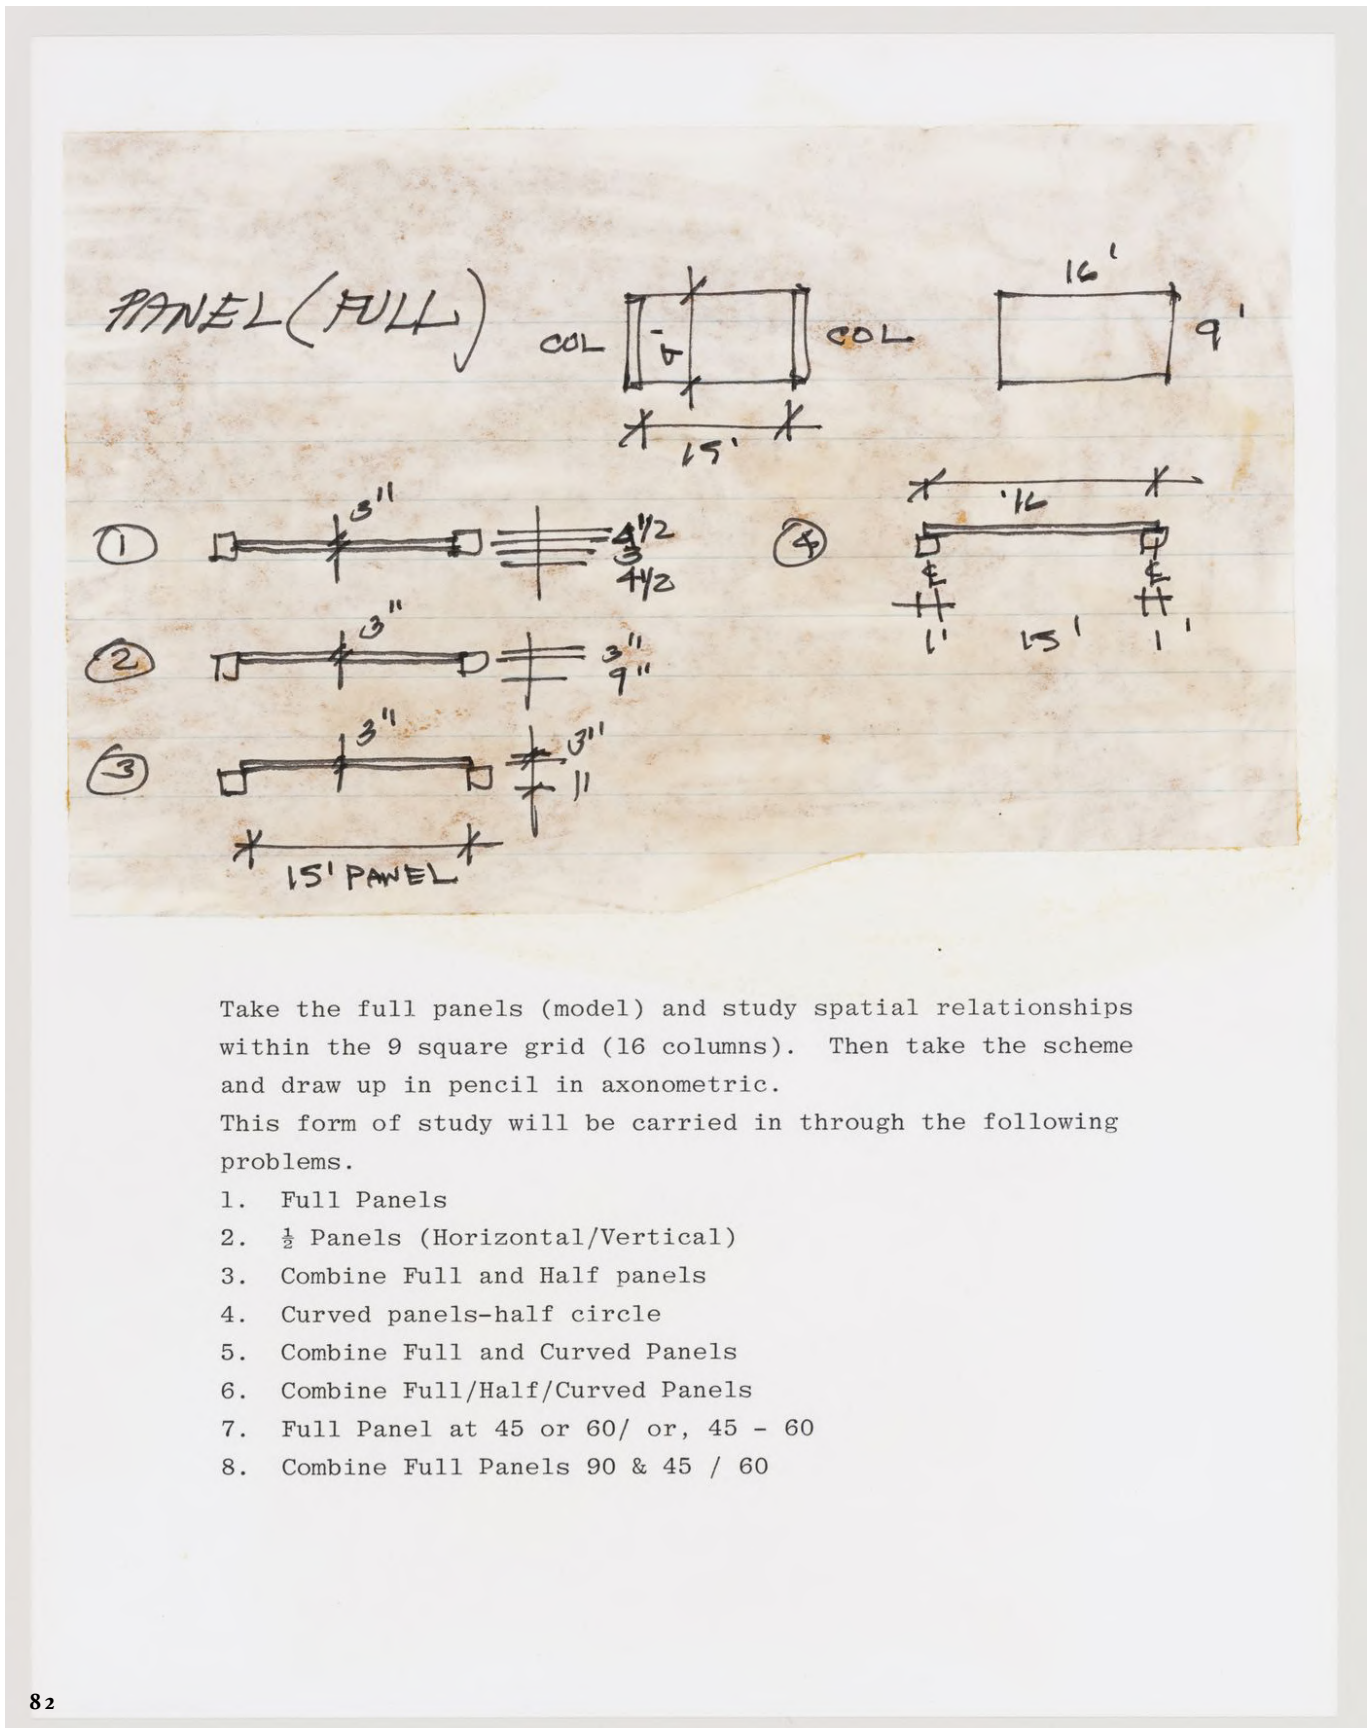 PANEL (FULL)
COL
9'
COL
15'
16'
9'
1
3"
4 1/2
3
4 1/2
2
3"
3"
9"
3
3"
3"
11
15' PANEL
4
'16
℄
℄
1'
15'
1'
Take the full panels (model) and study spatial relationships
within the 9 square grid (16 columns).  Then take the scheme
and draw up in pencil in axonometric.
This form of study will be carried in through the following
problems.
1.  Full Panels
2.  ½ Panels (Horizontal/Vertical)
3.  Combine Full and Half panels
4.  Curved panels-half circle
5.  Combine Full and Curved Panels
6.  Combine Full/Half/Curved Panels
7.  Full Panel at 45 or 60/ or, 45 - 60
8.  Combine Full Panels 90 & 45 / 60
82